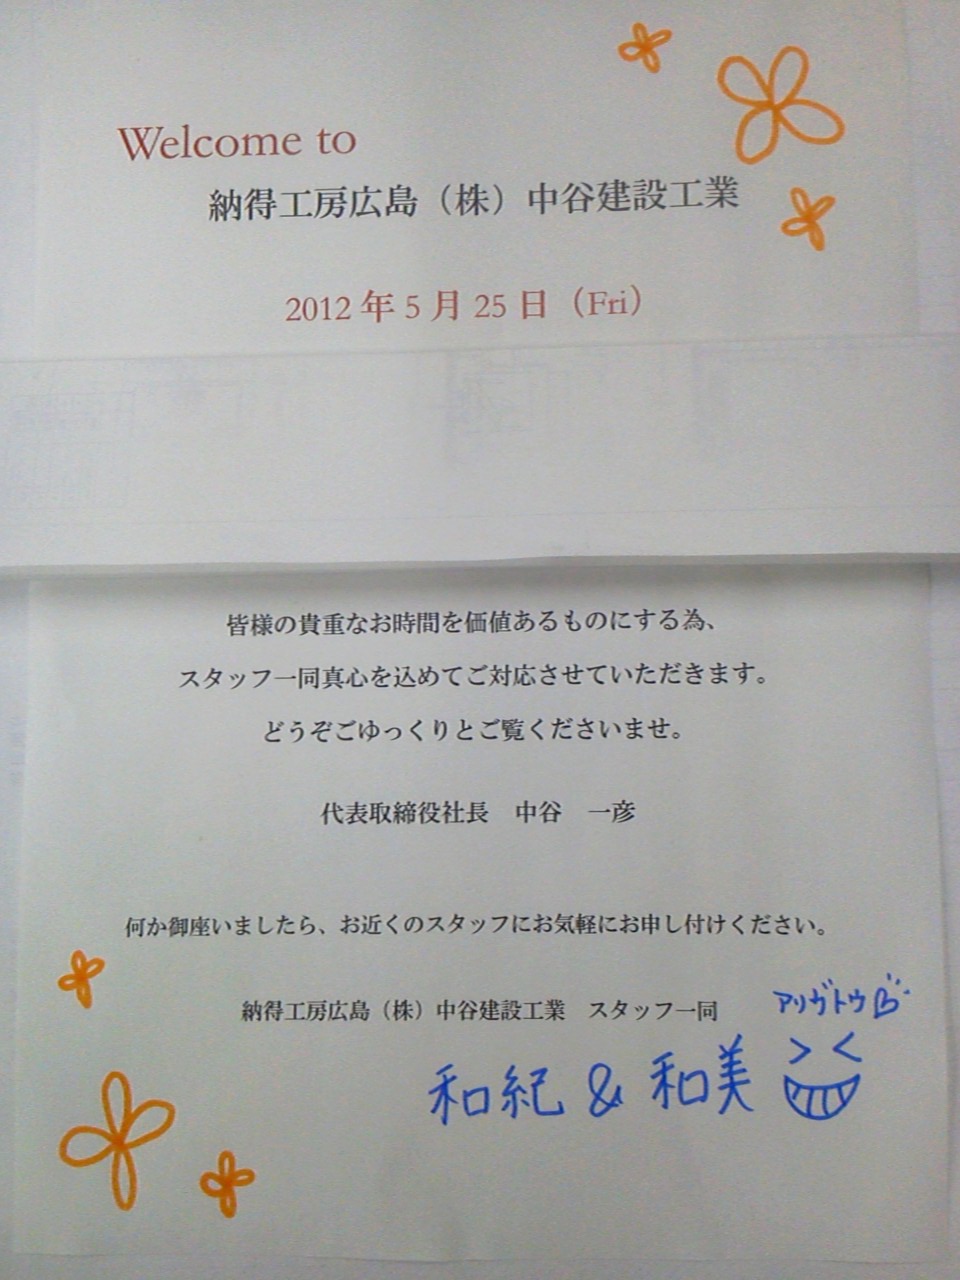 Welcome to
納得工房広島（株）中谷建設工業
2012年5月25日（Fri）
皆様の貴重なお時間を価値あるものにする為、
スタッフ一同真心を込めてご対応させていただきます。
どうぞごゆっくりとご覧くださいませ。
代表取締役社長　中谷　一彦
何か御座いましたら、お近くのスタッフにお気軽にお申し付けください。
納得工房広島（株）中谷建設工業　スタッフ一同
アリガトウ
和紀 & 和美